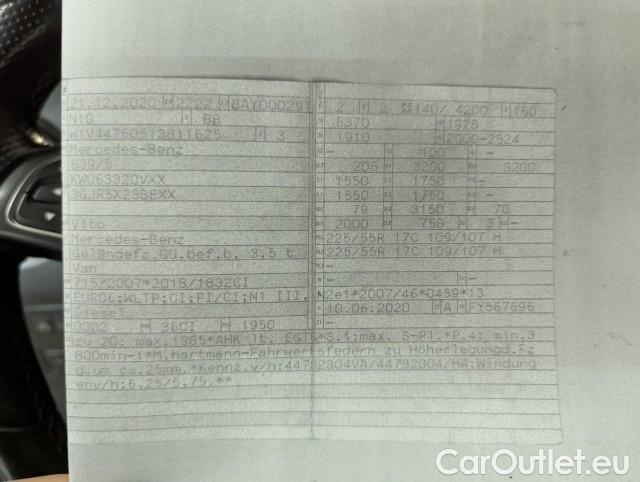 21.12.2020 2222 8AY000297 2 2 140/ 4200 160
N1G BB 5370 1928
W1V44760513811625 3 1910 2000-2524
Mercedes-Benz - 100 -
639/5 - 205 3200 3200
KWU6332QVXX 1550 1750 -
3GJR5X23BEXX 1550 1750 -
79 3150 70
Vito 2000 750 3 -
Mercedes-Benz 225/55R 17C 109/107 H
Geländefz.GÜ.bef.b. 3,5 t 225/55R 17C 109/107 H
Van -
715/2007*2018/1832CI - -
EURO6;WLTP;CI;PI/CI;N1 III, N2e1*2007/46*0459*13
Diesel 10.06.2020 A FY567696
0002 36CI 1950 -
zu 2G: max.1985*AHK lt. EGTG*S.1:max. S-Pl.*P.4: min.3
800min-1*M.hartmann-Fahrwerksfedern zu Höherlegungd.Fz
g.um ca.25mm,*Kennz.v/h:44792304VA/44792304/HA;Windung
env/h:6,25/5,75.**
CarOutlet.eu